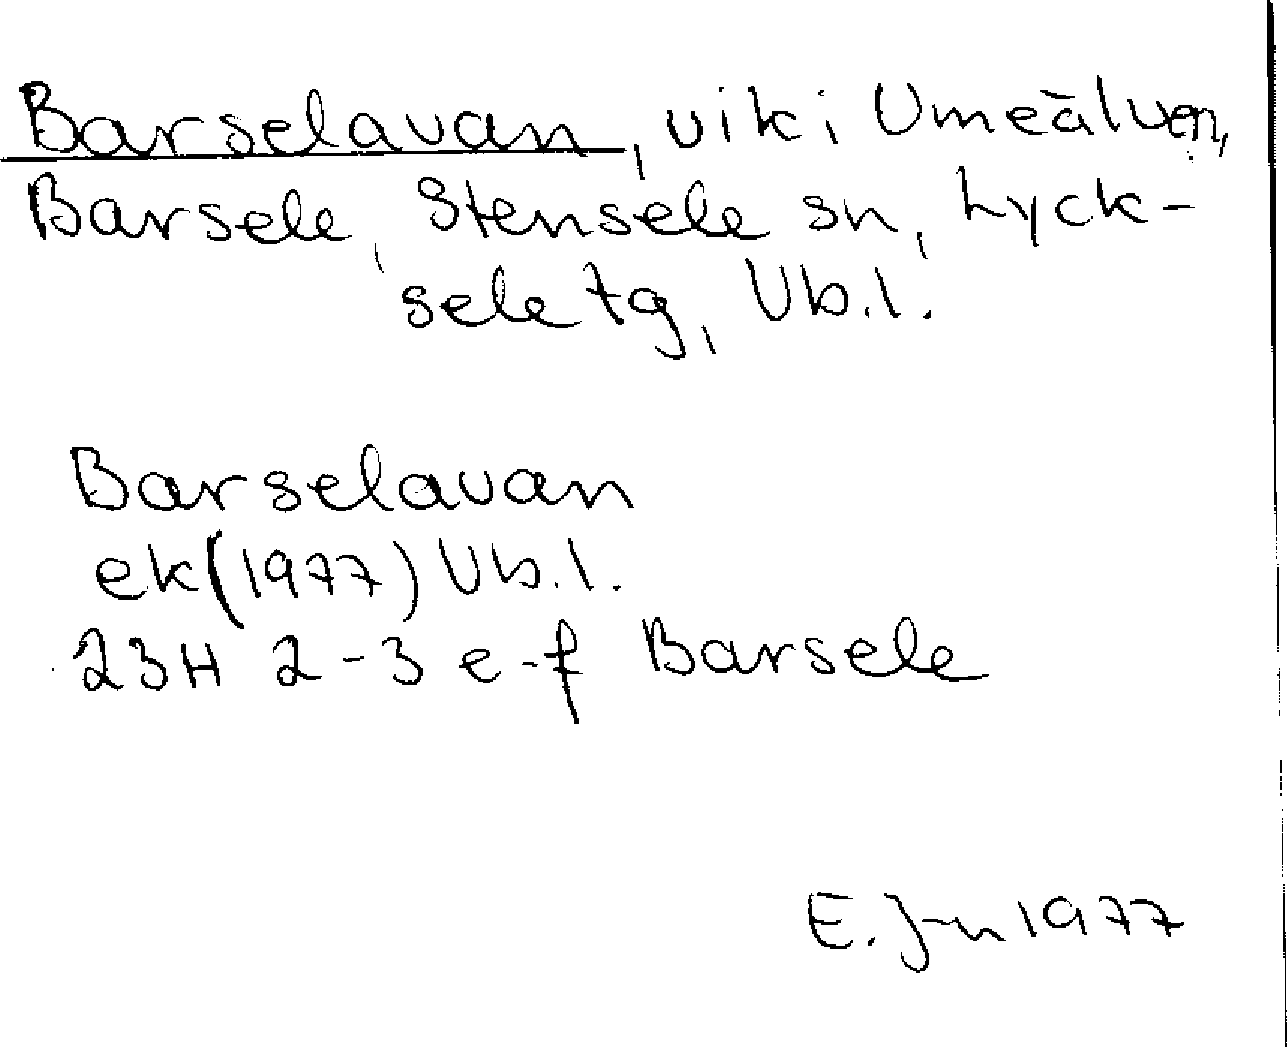 Barselavan, vik i Umeälven,
Barsele, Stensele sn, Lyck-
sele tg, Vb.l.
Barselavan
ek (1977) Vb.l.
23H 2-3 e-f Barsele
E. J-n 1977